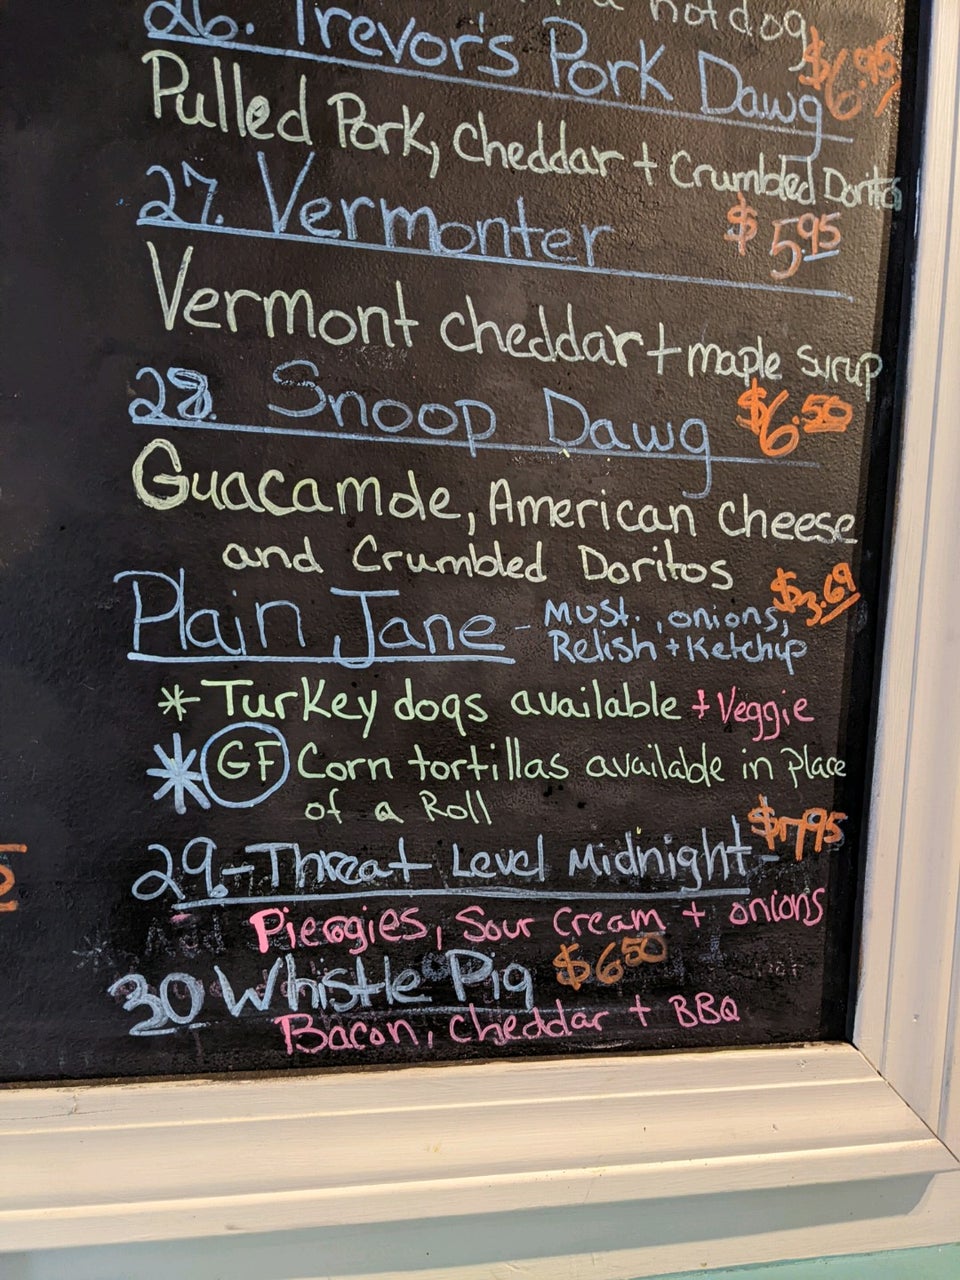 a hotdog
26. Trevor's Pork Dawg $6.95
Pulled Pork, Cheddar + Crumbled Doritos
27. Vermonter $5.95
Vermont cheddar + maple syrup
28. Snoop Dawg $6.50
Guacamole, American cheese
and Crumbled Doritos
Plain Jane - Must., onions, $3.69
Relish + Ketchup
* Turkey dogs available + Veggie
* GF Corn tortillas available in place
of a Roll
29.- Threat Level Midnight - $7.95
Pierogies, Sour Cream + onions
30 Whistle Pig $6.50
Bacon, cheddar + BBQ